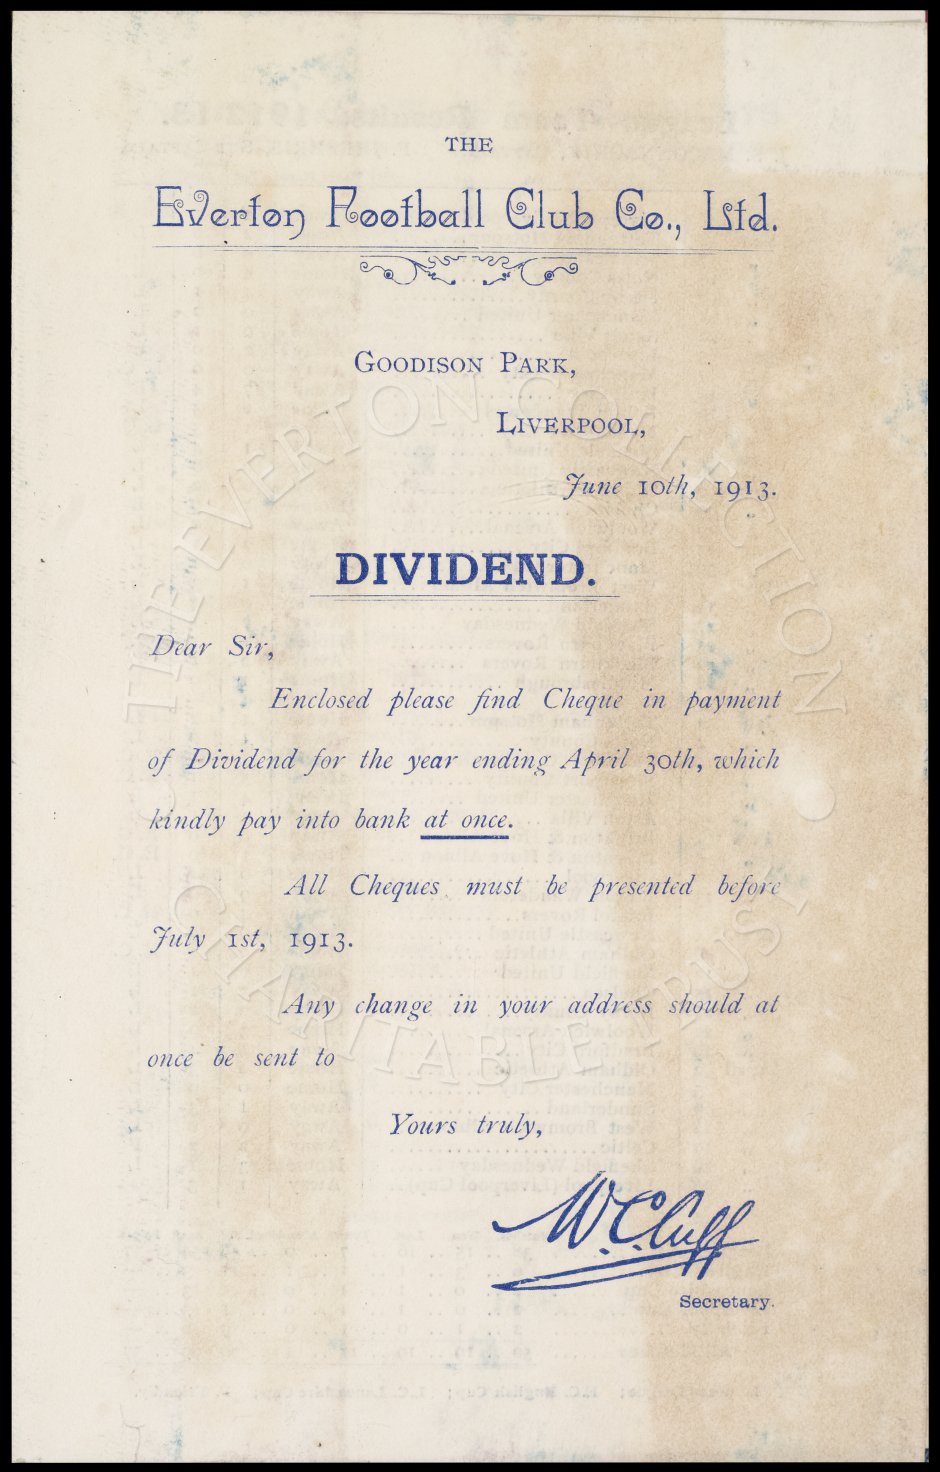 THE
Everton Football Club Co., Ltd.
GOODISON PARK,
LIVERPOOL,
June 10th, 1913.
DIVIDEND.
Dear Sir,
Enclosed please find Cheque in payment
of Dividend for the year ending April 30th, which
kindly pay into bank at once.
All Cheques must be presented before
July 1st, 1913.
Any change in your address should at
once be sent to
Yours truly,
W. C. Cuff
Secretary.
THE EVERTON COLLECTION
CHARITABLE TRUST